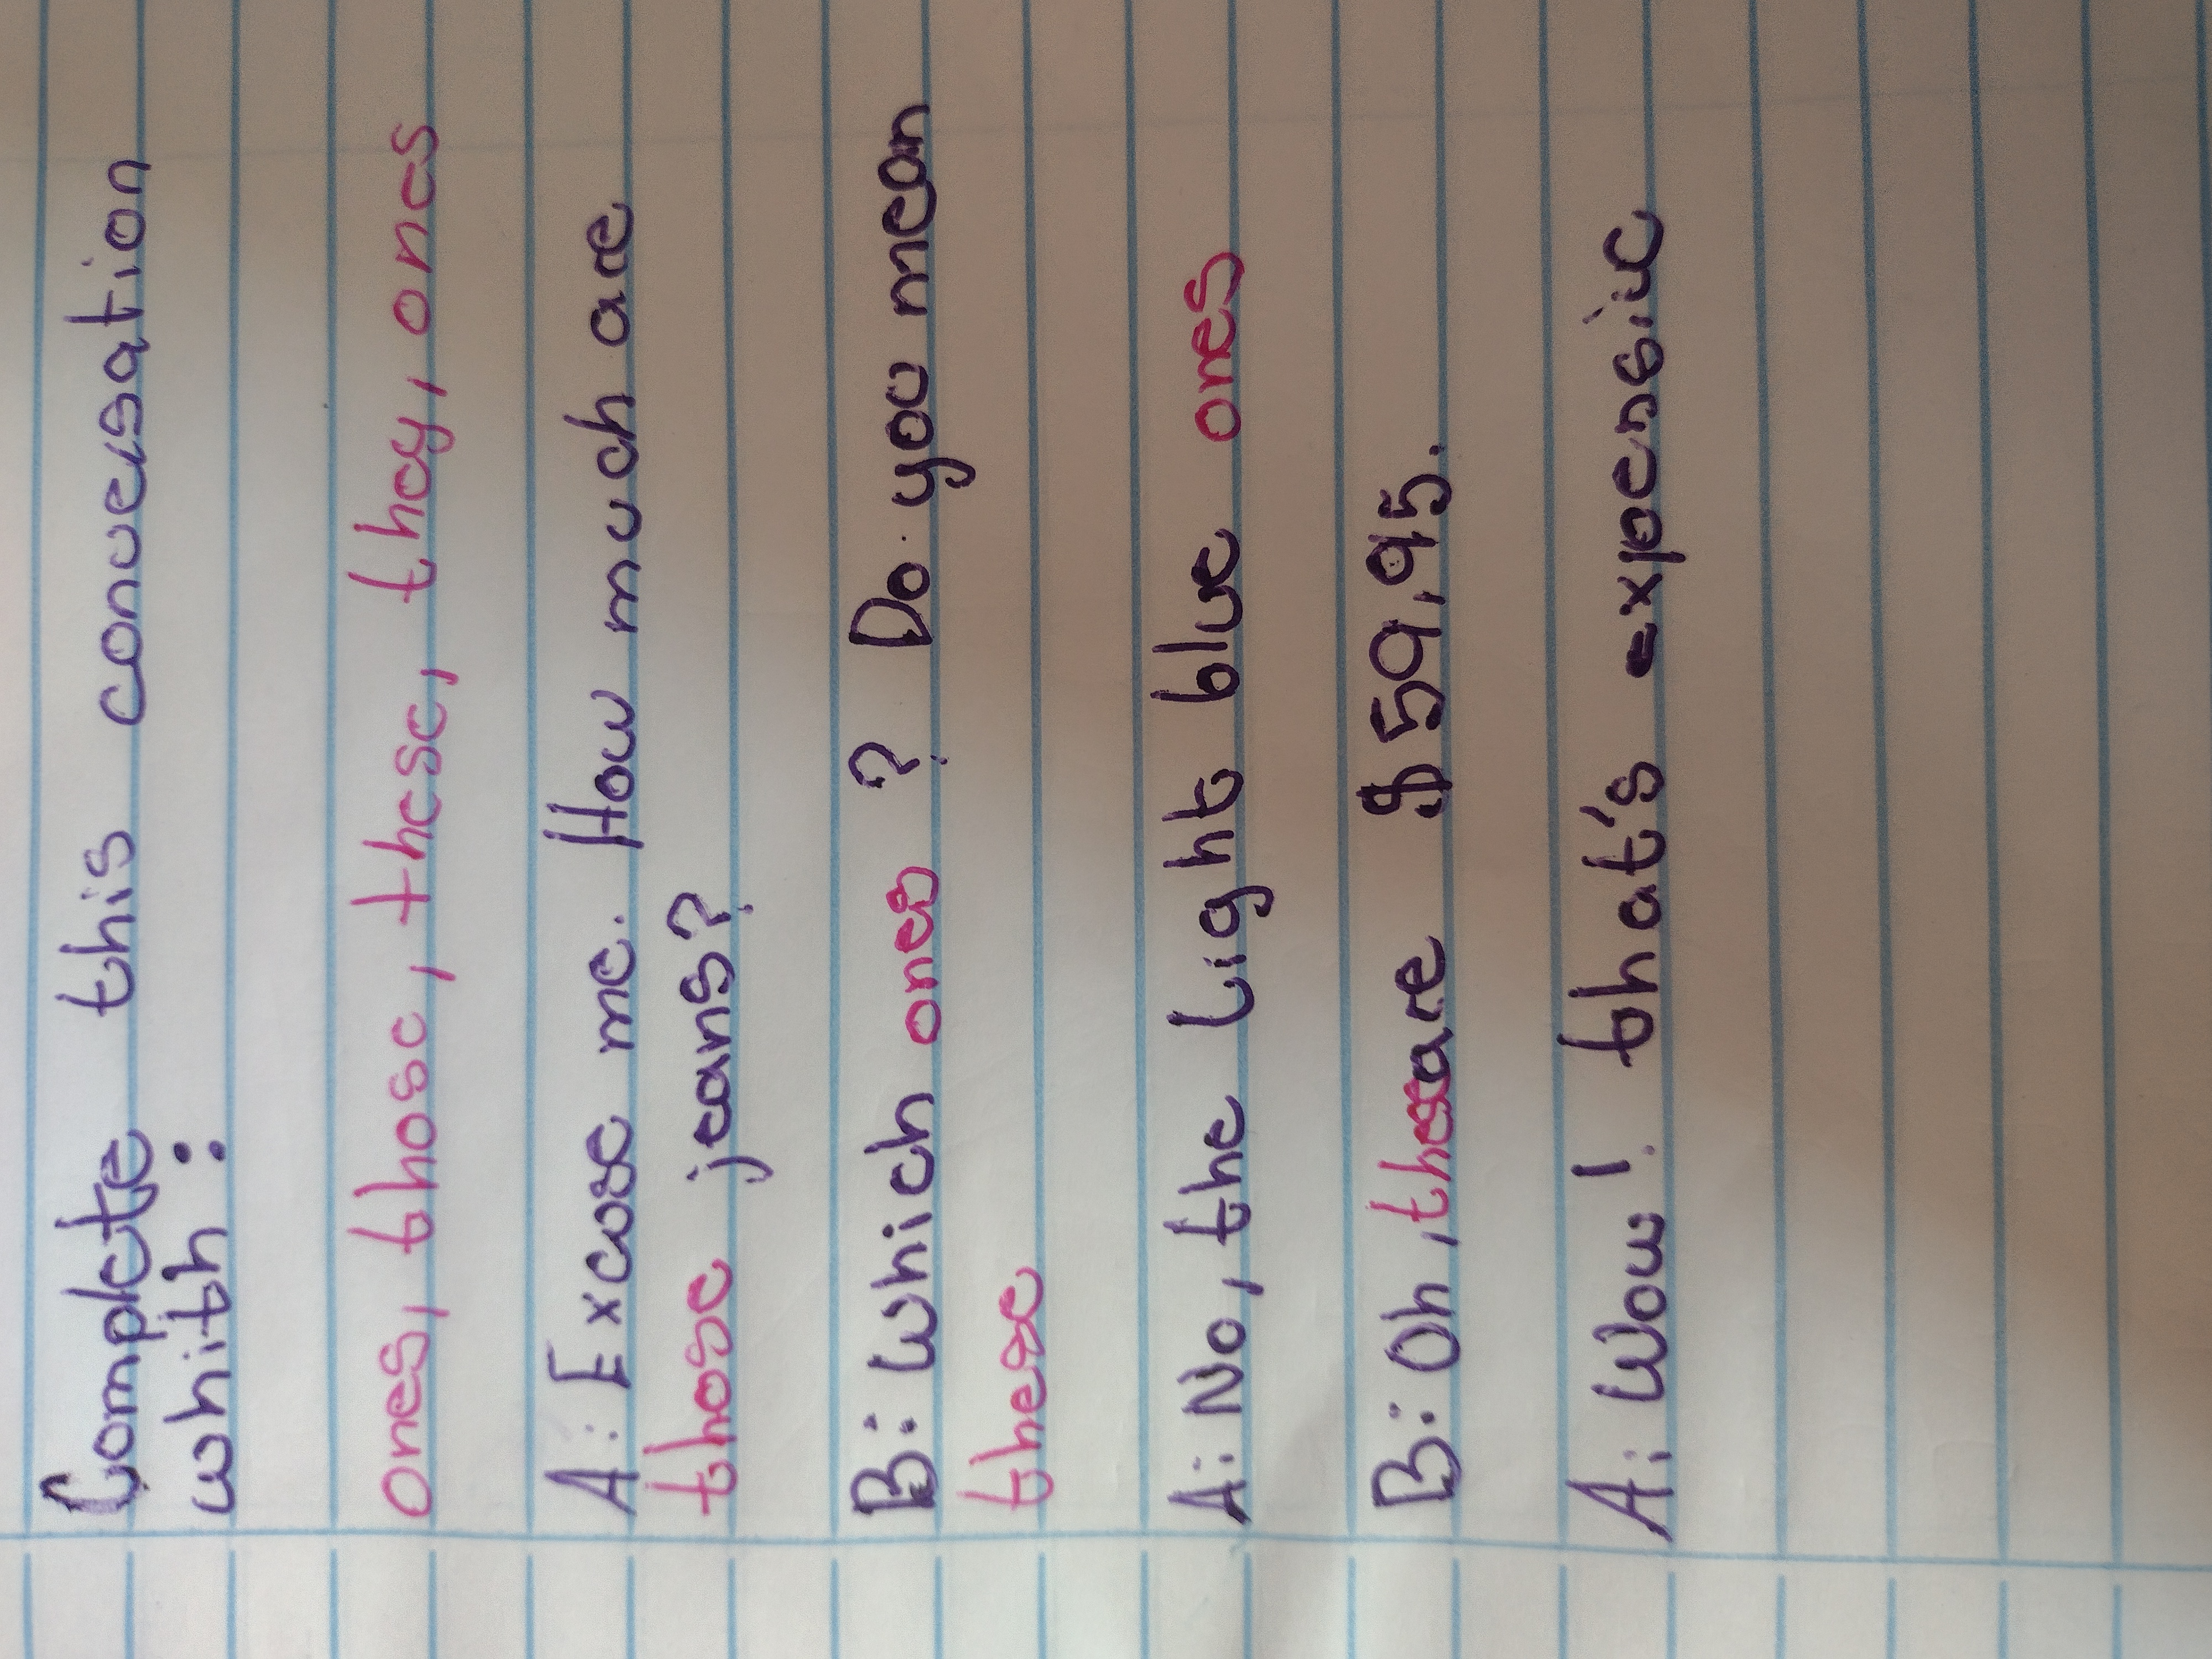 Complete this conversation
whith:
ones, those, these, they, ones
A: Excuse me. How much are
those jeans?
B: Which ones ? Do you mean
these
A: No, the Light blue ones
B: Oh, these are $59,95.
A: Wow! that's expensive